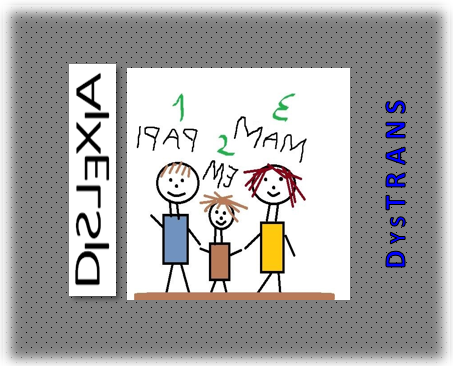 DISLEXIA
1
PAPI
2
ME
3
MAM
DysTRANS